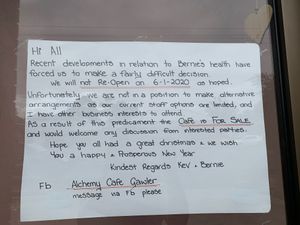 Hi All
Recent developments in relation to Bernie's health have
forced us to make a fairly difficult decision
We will not Re-Open on 6-1-2020 as hoped.
Unfortunately we are not in a position to make alternative
arrangements as our current staff options are limited, and
I have other business interests to attend.
As a result of this predicament the Cafe is FOR SALE
and would welcome any discussion from interested parties.
Hope you all had a great christmas & we wish
You a happy & Prosperous New Year
Kindest Regards Kev & Bernie
Fb Alchemy Cafe Gawler
message via Fb please